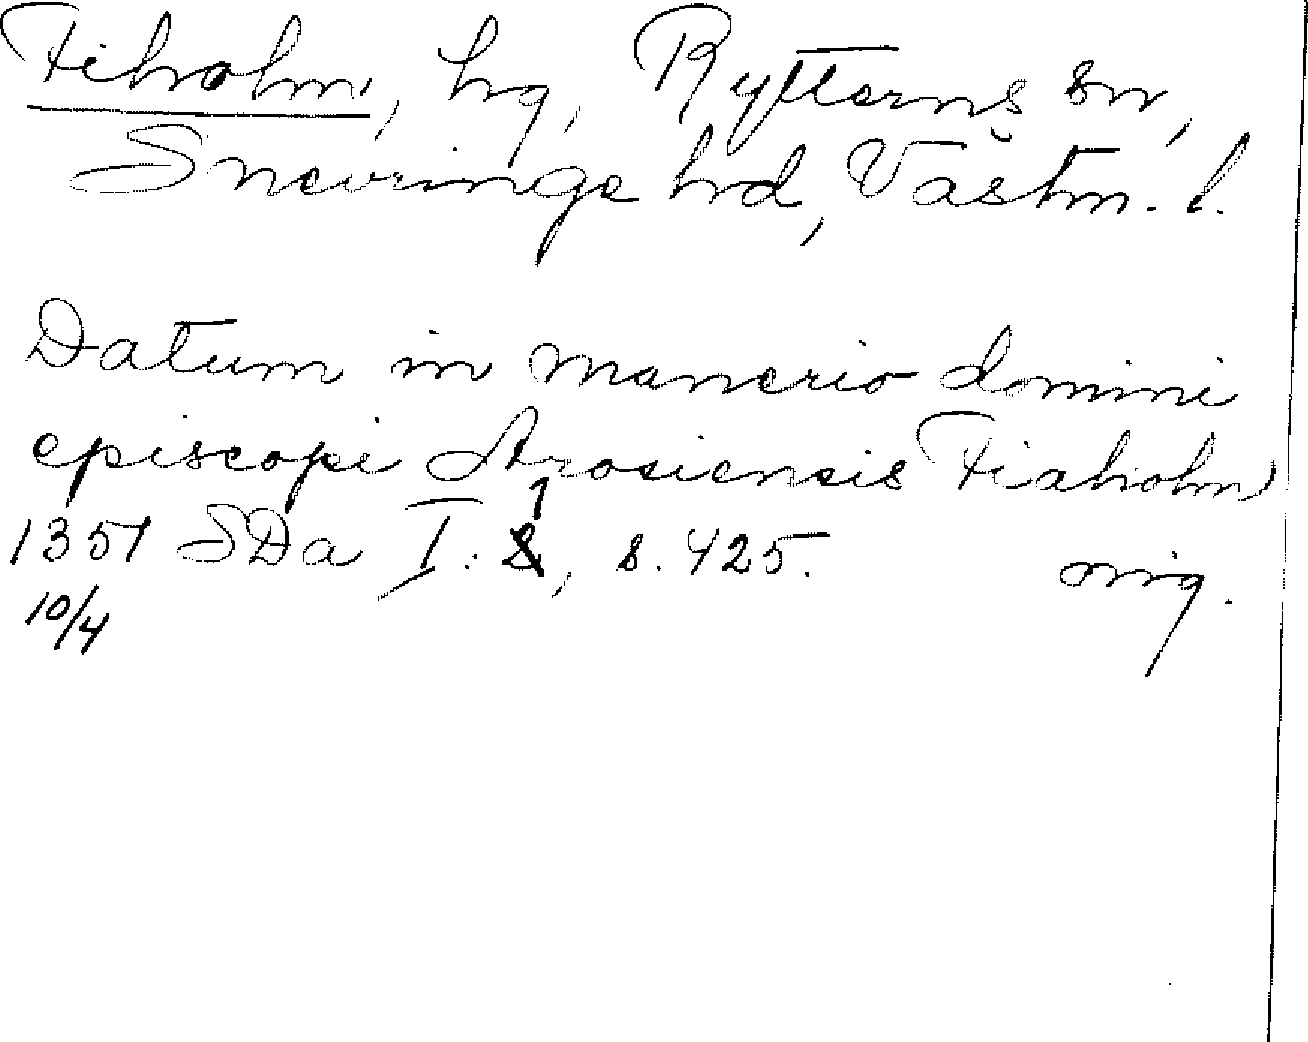 Fiholm, hg, Rytterns sn,
Snevringe hd, Västm. l.
Datum in manerio domini
episcopi Arosiensis Fiaholm
1351 SDa I:1, s. 425. orig.
10/4